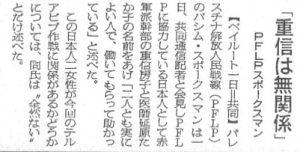 「重信は無関係」
PFLPスポークスマン
【ベイルート一日＝共同】パレ
スチナ解放人民戦線（PFLP）
のバシム・スポークスマンは一
日、共同通信記者と会見、PFL
Pに協力している日本人として赤
軍派幹部の重信房子と医師原た
か子の名前をあげ「二人とも実に
よい人で、働いてもらって助かっ
ている」と述べた。
この日本人二女性が今回のテル
アビブ作戦に関係があるかどうか
については、同氏は〝全然ない〟
とだけ述べた。